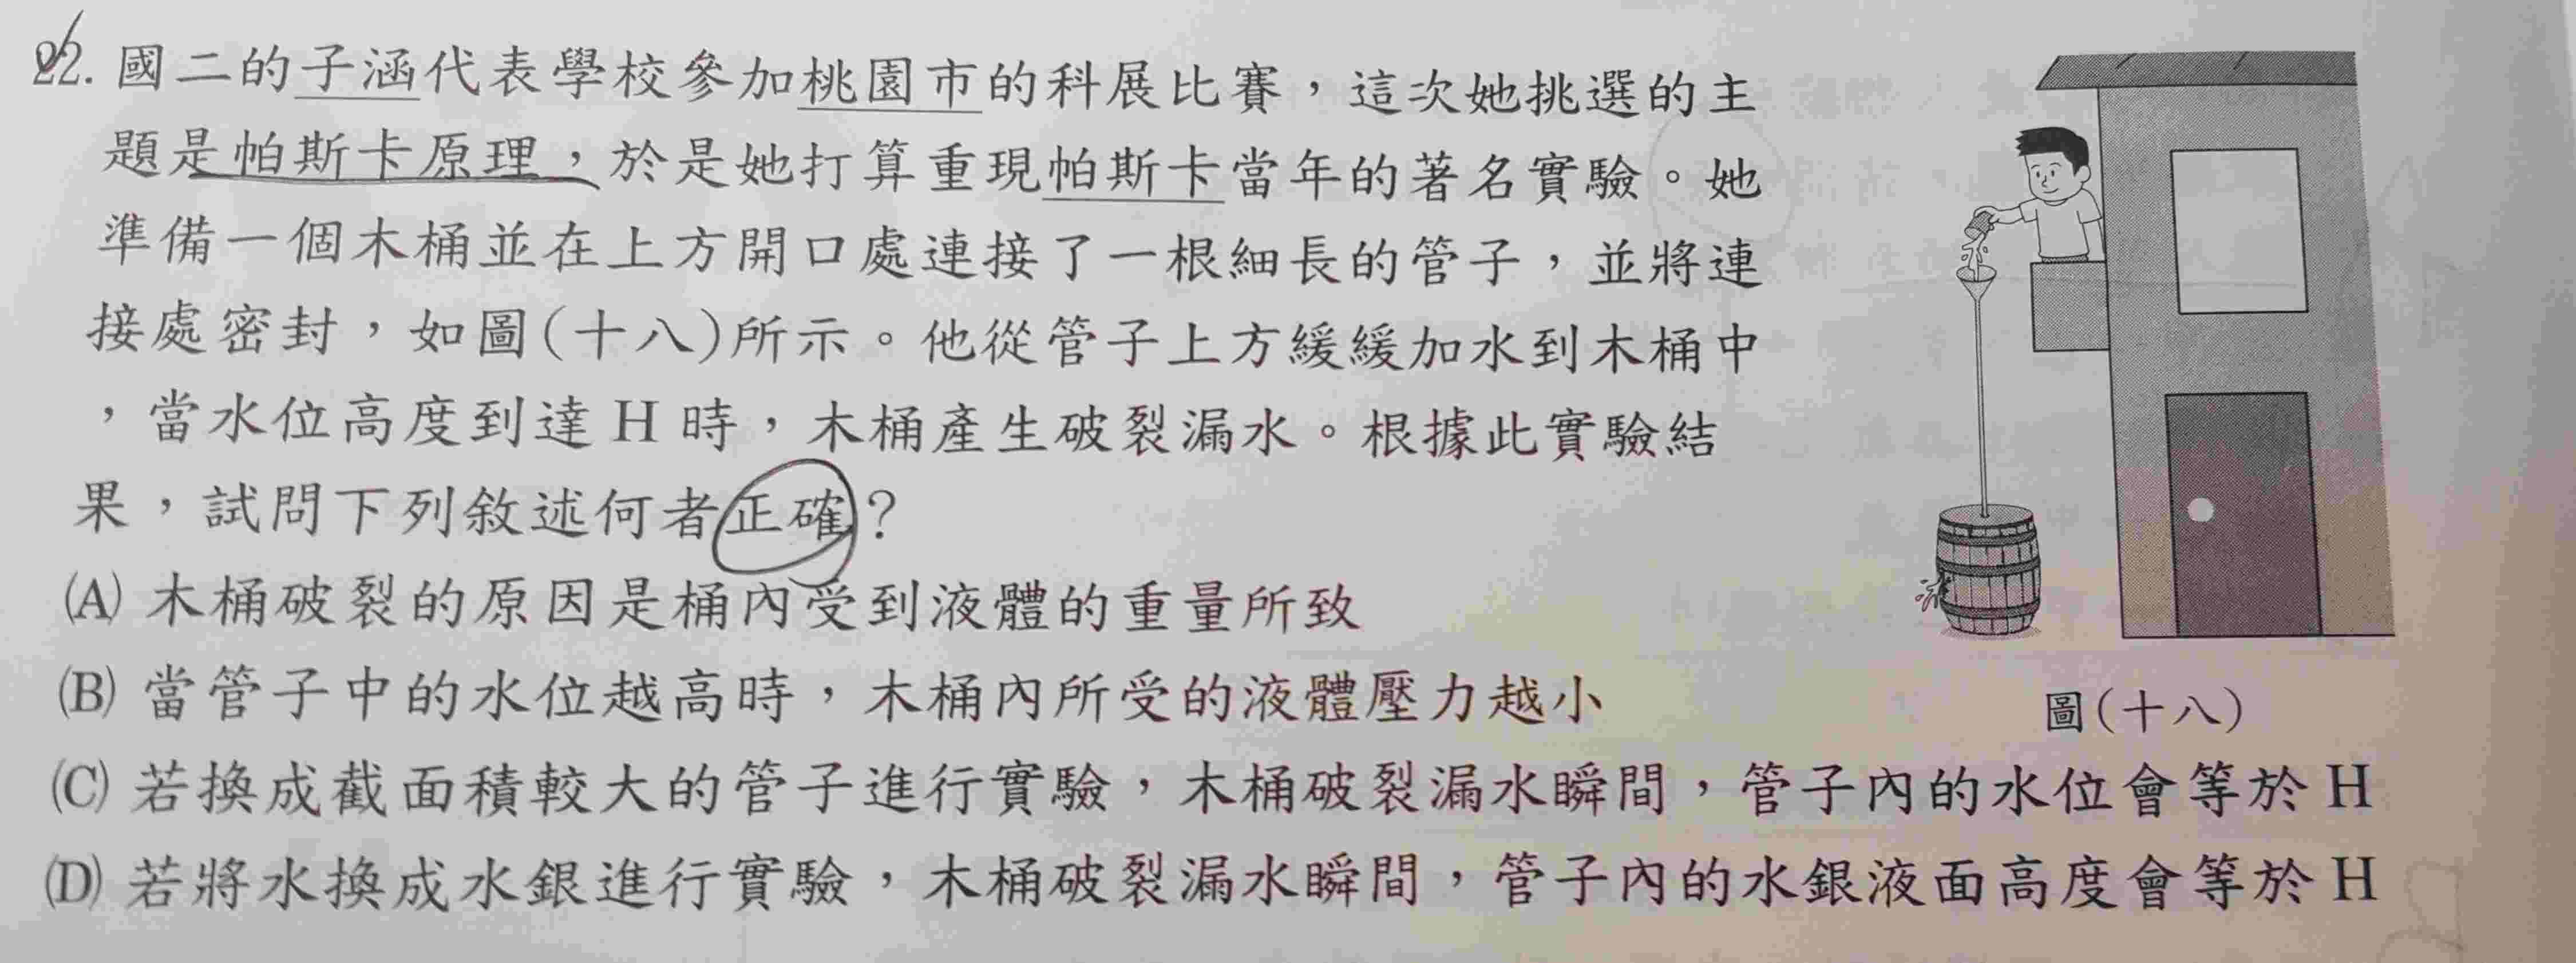 22. 國二的子涵代表學校參加桃園市的科展比賽，這次她挑選的主
題是帕斯卡原理，於是她打算重現帕斯卡當年的著名實驗。她
準備一個木桶並在上方開口處連接了一根細長的管子，並將連
接處密封，如圖(十八)所示。他從管子上方緩緩加水到木桶中
，當水位高度到達 H 時，木桶產生破裂漏水。根據此實驗結
果，試問下列敘述何者正確？
(A) 木桶破裂的原因是桶內受到液體的重量所致
(B) 當管子中的水位越高時，木桶內所受的液體壓力越小
(C) 若換成截面積較大的管子進行實驗，木桶破裂漏水瞬間，管子內的水位會等於 H
(D) 若將水換成水銀進行實驗，木桶破裂漏水瞬間，管子內的水銀液面高度會等於 H
圖(十八)